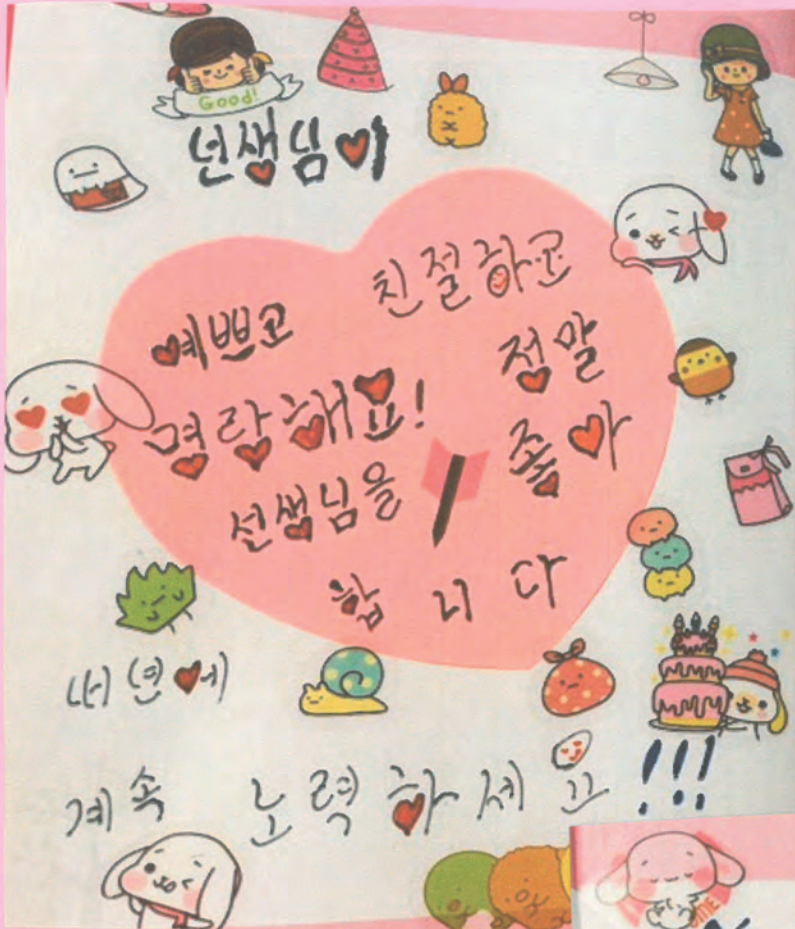 Good!
선생님이
예쁘고 친절하고
명랑해요! 정말
선생님을 좋아
합니다
내년에
계속 노력하세요!!!